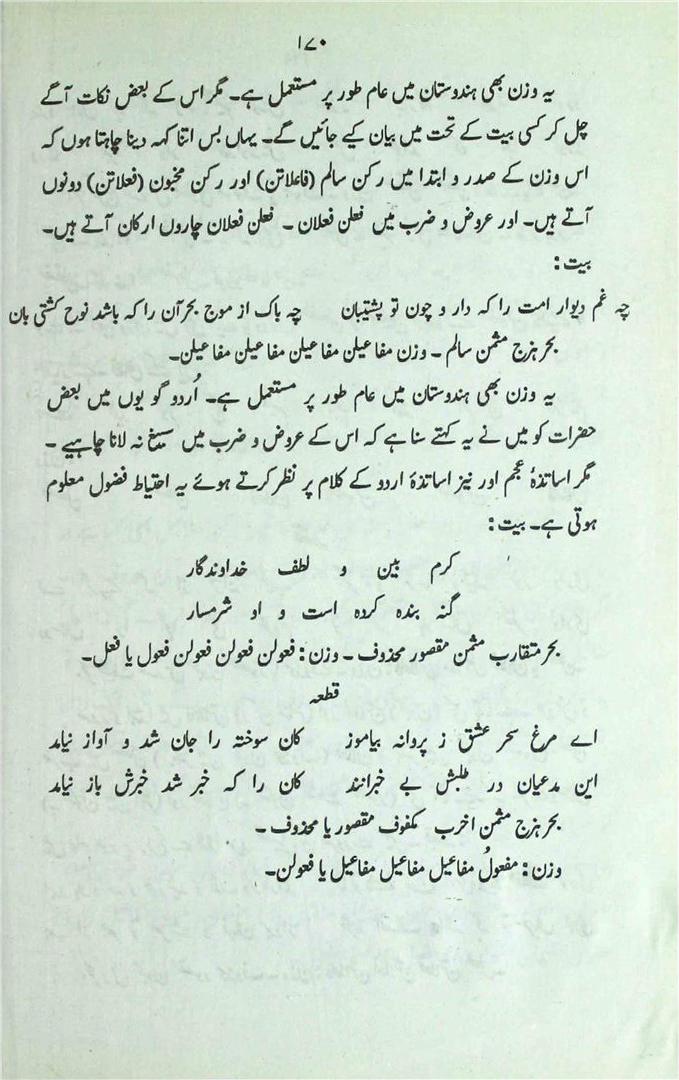 ۱۷۰
یہ وزن بھی ہندوستان میں عام طور پر مستعمل ہے۔ مگر اس کے بعض نکات آگے
چل کر کسی بیت کے تحت میں بیان کیے جائیں گے۔ یہاں بس اتنا کہہ دینا چاہتا ہوں کہ
اس وزن کے صدر و ابتدا میں رکن سالم (فاعلاتن) اور رکن مخبون (فعلاتن) دونوں
آتے ہیں۔ اور عروض و ضرب میں فعلن فعلان ۔ فعلن فعلان چاروں ارکان آتے ہیں۔
بیت :
چہ غم دیوار امت را کہ دار و چون تو پشتیبان چہ باک از موج بحر آن را کہ باشد نوح کشتی بان
بحر ہزج مثمن سالم ۔ وزن مفاعیلن مفاعیلن مفاعیلن مفاعیلن۔
یہ وزن بھی ہندوستان میں عام طور پر مستعمل ہے۔ اُردو گویوں میں بعض
حضرات کو میں نے یہ کہتے سنا ہے کہ اس کے عروض و ضرب میں مسبغ نہ لانا چاہیے ۔
مگر اساتذۂ عجم اور نیز اساتذۂ اردو کے کلام پر نظر کرتے ہوئے یہ احتیاط فضول معلوم
ہوتی ہے۔ بیت :
کرم بین و لطف خداوندگار
گنہ بندہ کردہ است و او شرمسار
بحر متقارب مثمن مقصور محذوف ۔ وزن : فعولن فعولن فعولن فعول یا فعل۔
قطعہ
اے مرغ سحر عشق ز پروانہ بیاموز کان سوختہ را جان شد و آواز نیامد
این مدعیان در طلبش بے خبرانند کان را کہ خبر شد خبرش باز نیامد
بحر ہزج مثمن اخرب مکفوف مقصور یا محذوف ۔
وزن : مفعولُ مفاعیل مفاعیل مفاعیل یا فعولن۔